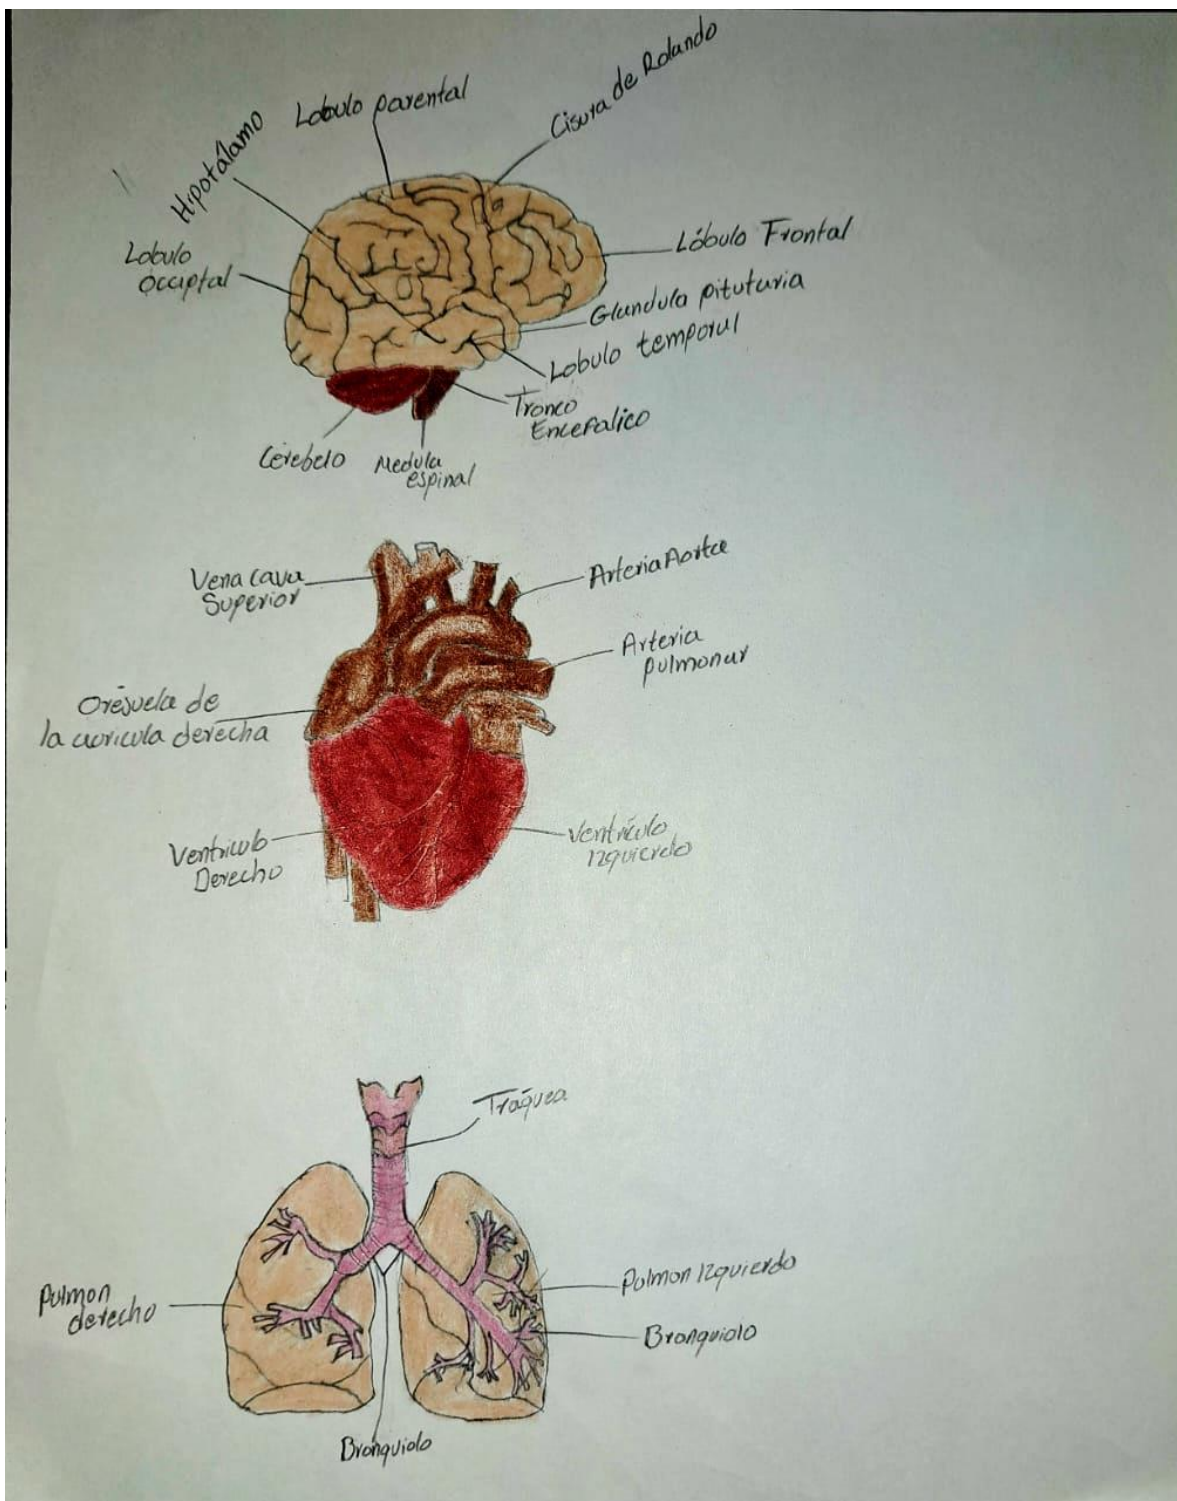 Cisura de Rolando
Lobulo parental
Hipotálamo
Lóbulo Frontal
Lobulo
occiptal
Glandula pitutaria
Lobulo temporal
Tronco
Encefalico
Cerebelo
Medula
espinal
Vena Cava
Superior
Arteria Aorta
Arteria
pulmonar
Orejuela de
la auricula derecha
Ventriculo
Derecho
Ventrículo
Izquierdo
Tráquea
Pulmon Izquierdo
Pulmon
derecho
Bronquiolo
Bronquiolo